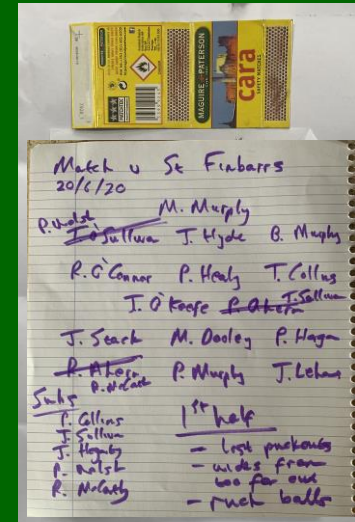 MAGUIRE & PATERSON
cara
SAFETY MATCHES
Match v St Finbarrs
20/6/20
M. Murphy
P. Walsh
J. O'Sullivan J. Hyde B. Murphy
R. O'Connor P. Healy T. Collins
J. O'Keefe P. Ahern J. Sullivan
J. Stack M. Dooley P. Hagan
P. Ahern P. Murphy J. Lehane
R. McCarthy
Subs
P. Collins
J. Sullivan
J. Hegarty
P. Walsh
R. McCarthy
1st half
- lost puckouts
- wides from
too far out
- ruck balls